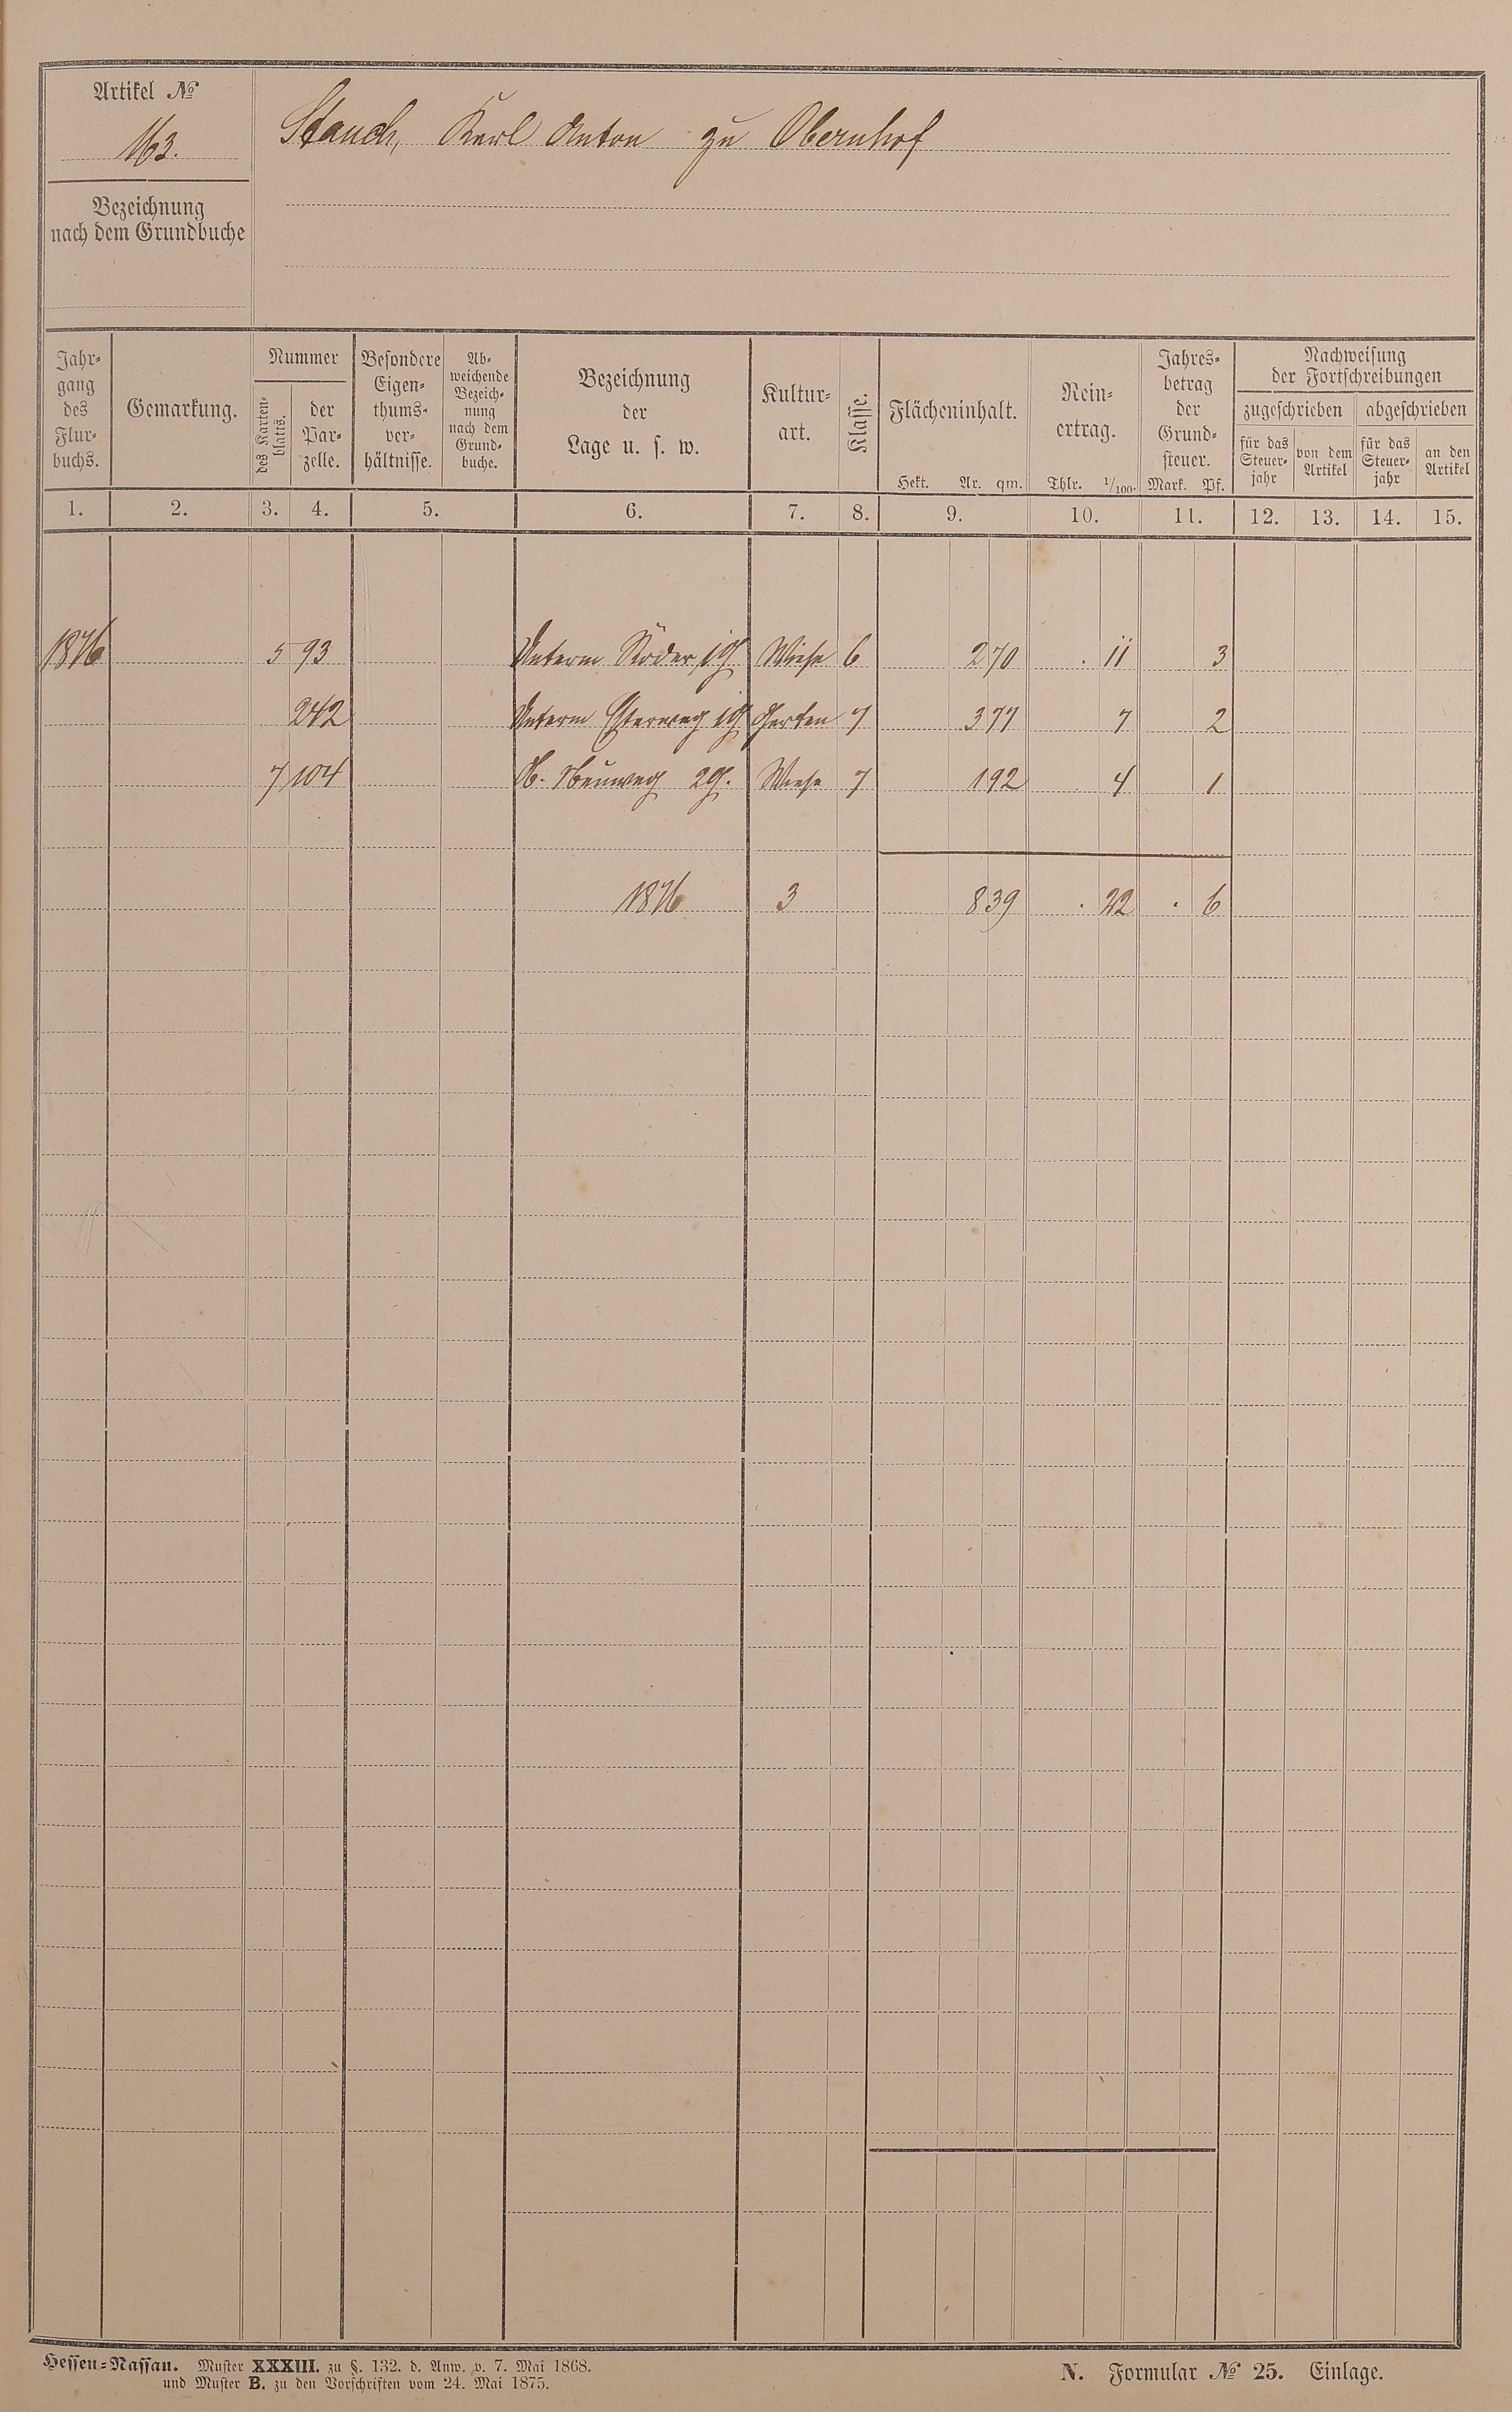 Artikel №
163.
Stauch, Karl Anton zu Obernhof
Bezeichnung
nach dem Grundbuche
Jahr-
gang
des
Flur-
buchs.
Gemarkung.
Nummer
des Karten-
blatts.
der
Par-
zelle.
Besondere
Eigen-
thums-
ver-
hältnisse.
Ab-
weichende
Bezeich-
nung
nach dem
Grund-
buche.
Bezeichnung
der
Lage u. s. w.
Kultur-
art.
Klasse.
Flächeninhalt.
Hekt. Ar. qm.
Rein-
ertrag.
Thlr. 1/100.
Jahres-
betrag
der
Grund-
steuer.
Mark. Pf.
Nachweisung
der Fortschreibungen
zugeschrieben abgeschrieben
für das
Steuer-
jahr
von dem
Artikel
für das
Steuer-
jahr
an den
Artikel
1. 2. 3. 4. 5. 6. 7. 8. 9. 10. 11. 12. 13. 14. 15.
1876 5 93 Unterm Röder Wiese 6 270 . 11 3
242 Unterm Garten 7 377 7 2
7 104 Neuweg 2 Wiese 7 192 4 1
1876 3 839 . 22 . 6
Hessen-Nassau. Muster XXXIII. zu §. 132. d. Anw. v. 7. Mai 1868.
und Muster B. zu den Vorschriften vom 24. Mai 1875.
N. Formular № 25. Einlage.